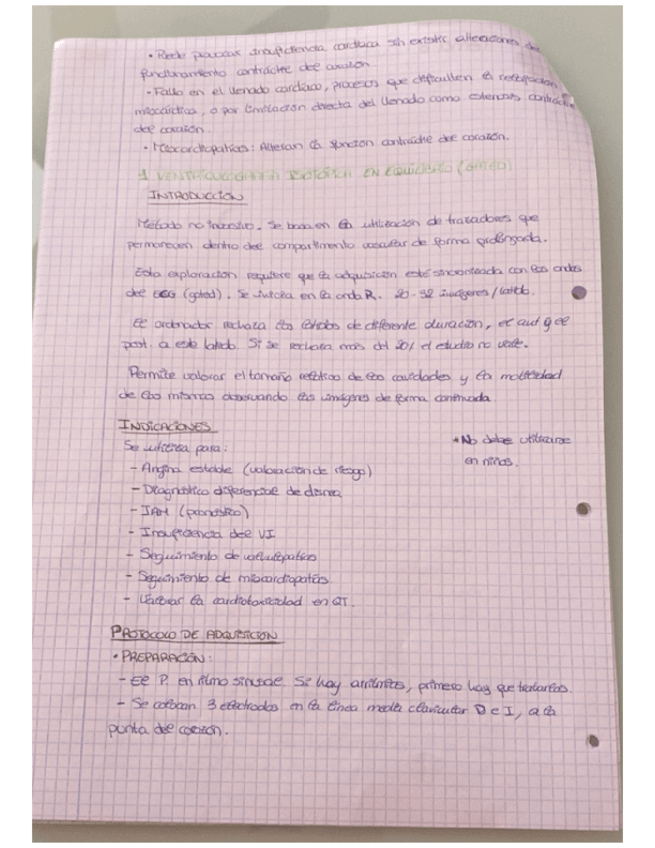 • Puede provocar insuficiencia cardiaca sin existir alteraciones de
funcionamiento contráctil del corazón
- Fallo en el llenado cardíaco, procesos que dificultan la
miocárdica, o por limitación directa del llenado como estenosis
del corazón.
• Miocardiopatías: Alteran la función contráctil del corazón.
VENTRICULOGRAFÍA ISOTÓPICA EN EQUILIBRIO (GATED)
INTRODUCCIÓN
Método no invasivo. Se basa en la utilización de trazadores que
permanecen dentro del compartimento vascular de forma prolongada.
Esta exploración requiere que la adquisición esté sincronizada con las ondas
del ECG (gated). Se inicia en la onda R. 20-32 imágenes/latido.
El ordenador rechaza los latidos de diferente duración, el ant y el
post. a este latido. Si se rechaza más del 20% el estudio no vale.
Permite valorar el tamaño relativo de las cavidades y la motilidad
de las mismas observando las imágenes de forma continuada.
INDICACIONES
Se utiliza para:
* No debe utilizarse
en niños.
- Angina estable (valoración de riesgo)
- Diagnóstico diferencial de disnea
- IAM (pronóstico)
- Insuficiencia del VI
- Seguimiento de valvulopatías
- Seguimiento de miocardiopatías
- Valorar la cardiotoxicidad en QT.
PROTOCOLO DE ADQUISICIÓN
• PREPARACIÓN:
- El P. en ritmo sinusal. Si hay arritmias, primero hay que tratarlas.
- Se colocan 3 electrodos en la línea media clavicular D e I, a la
punta del corazón.